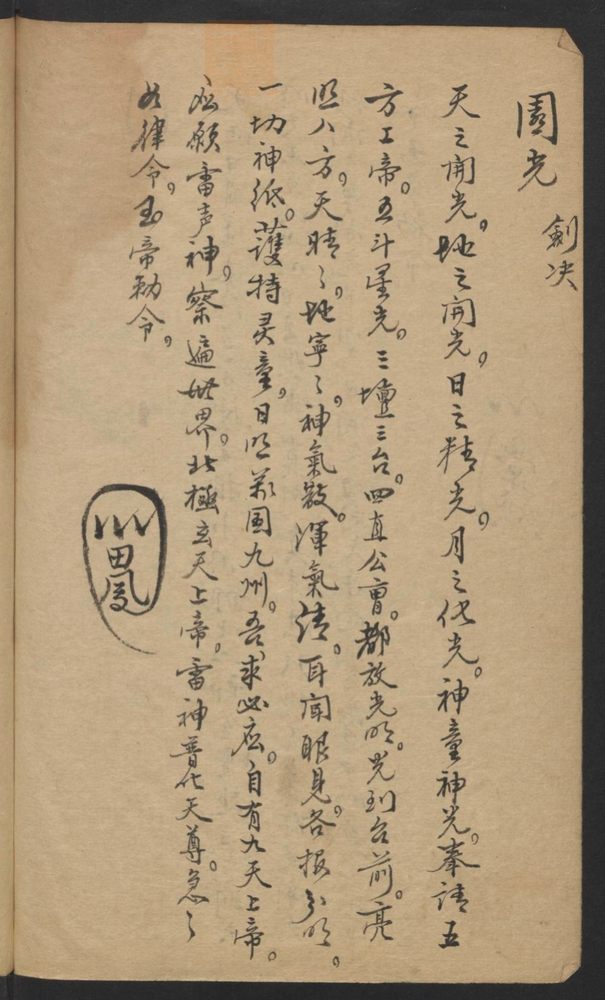 圓光
劍决
天之開光。地之開光。日之精光。月之化光。神童神光。奉請五
方五帝。五斗星光。三壇三台。四直公曹。都放光明。光到台前。亮
照八方。天晴〻。地寧〻。神氣散。渾氣清。耳闻眼見。各报分明。
一切神祇。護持灵童。日照萬国九州。吾求必应。自有九天上帝。
应願雷声神。察遍世界。北極玄天上帝。雷神普化天尊。急〻
如律令。玉帝勅令。